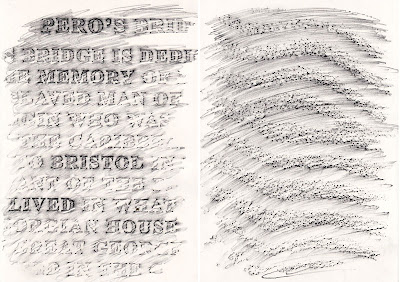 PERO'S BRI
BRIDGE IS DEDI
E MEMORY O
LAVED MAN OF
WHO WA
THE CARIBBE
TO BRISTOL IN
ANT OF THE
LIVED IN WHAT
ORGIAN HOUSE
GREAT GEORG
IN THE